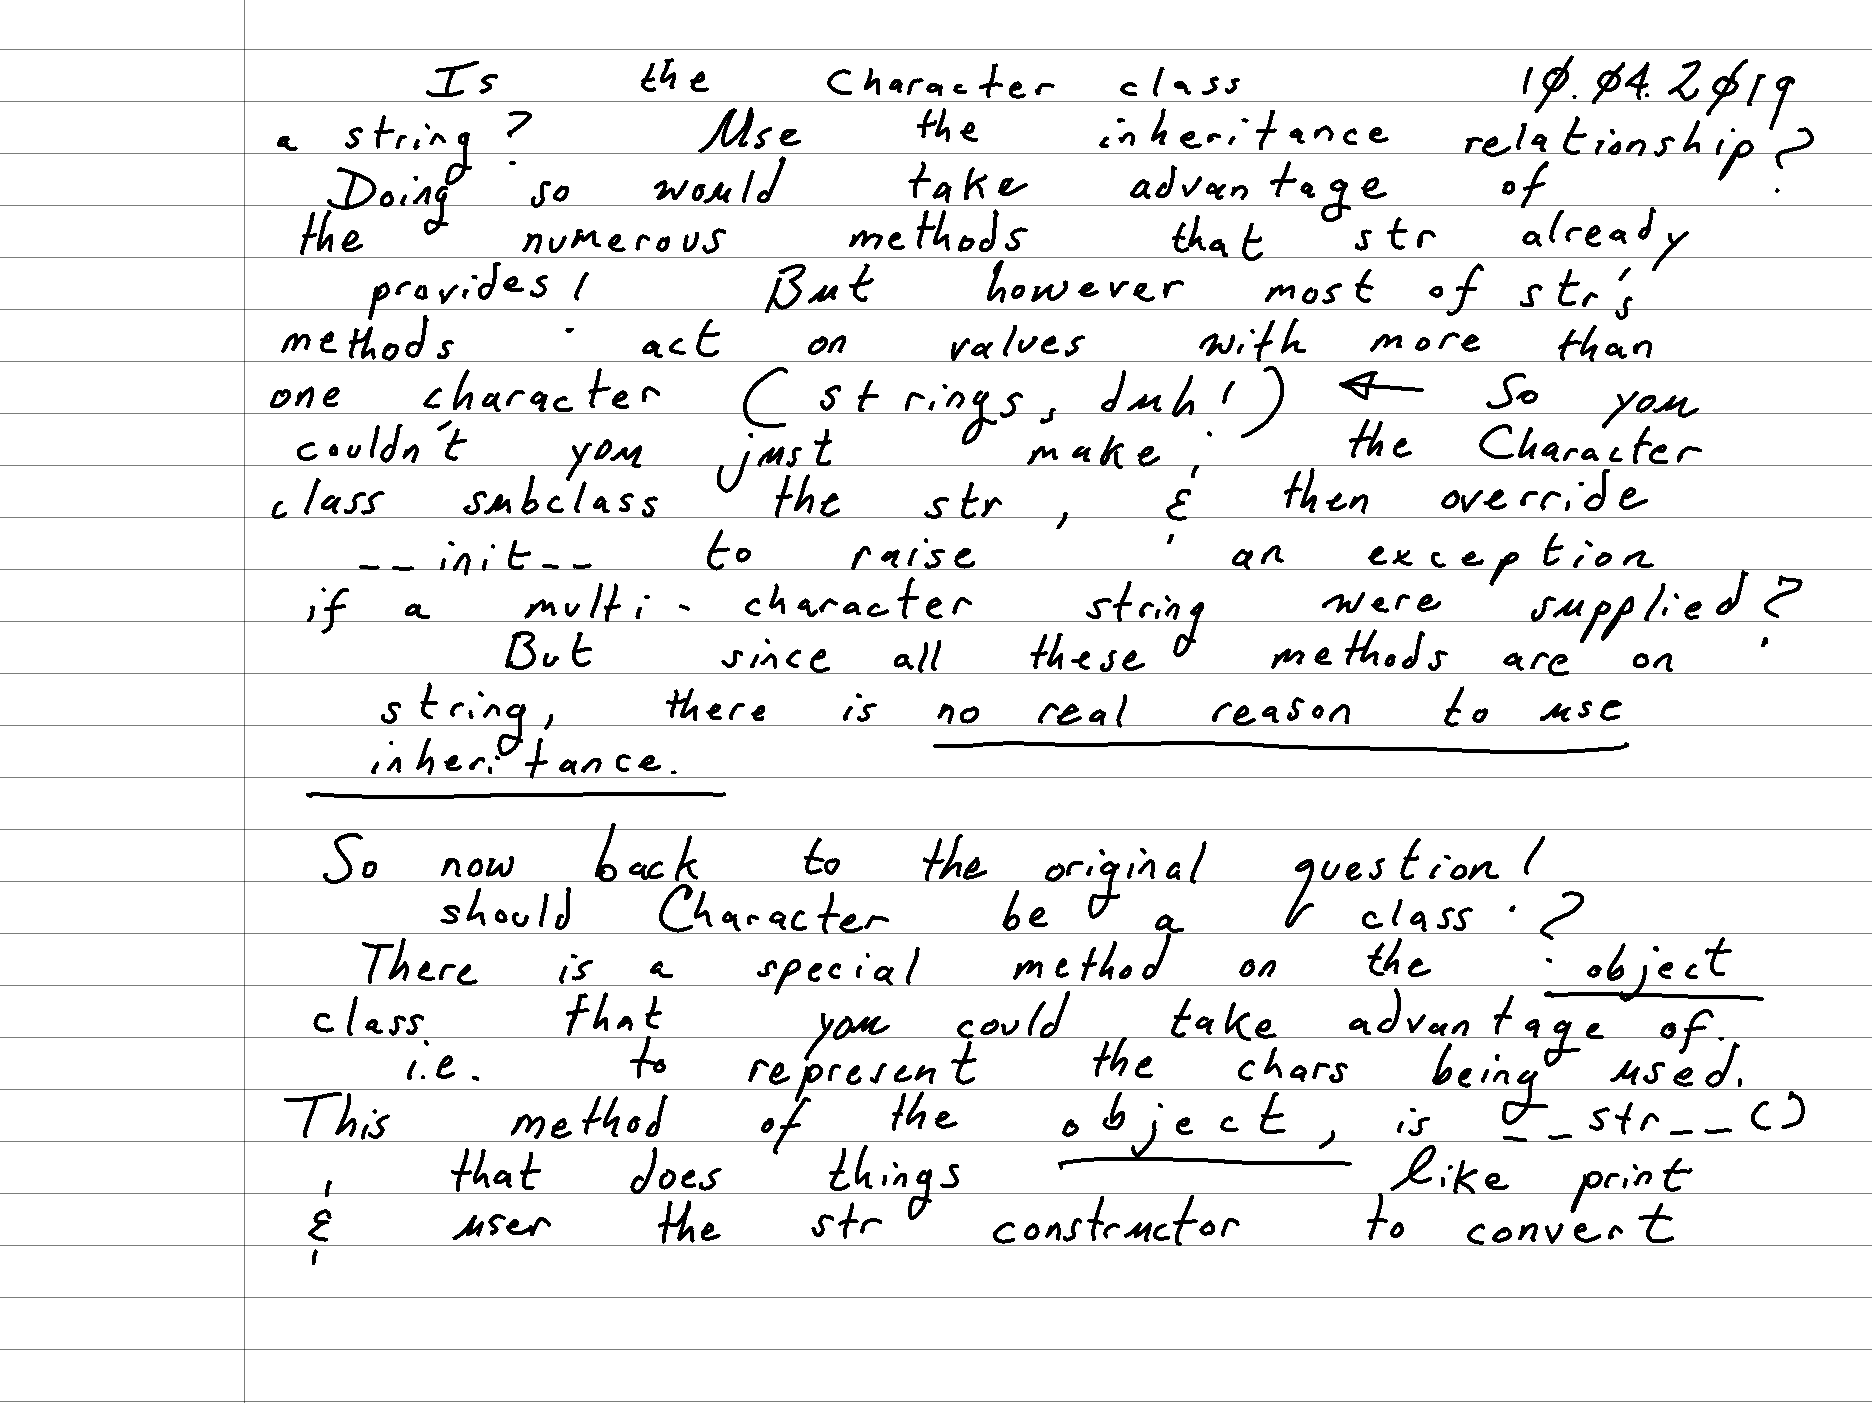 Is the Character class 10.04.2019
a string? Use the inheritance relationship?
Doing so would take advantage of
the numerous methods that str already
provides! But however most of str's
methods act on values with more than
one character (strings, duh!) ← So you
couldn't you just make the Character
class subclass the str, & then override
__init__ to raise an exception
if a multi-character string were supplied?
But since all these methods are on
string, there is no real reason to use
inheritance.
So now back to the original question!
should Character be a class?
There is a special method on the object
class that you could take advantage of.
i.e. to represent the chars being used.
This method of the object, is __str__()
that does things like print
& user the str constructor to convert